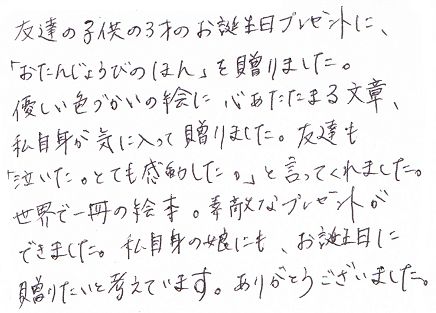 友達の子供の3才のお誕生日プレゼントに、
「おたんじょうびのほん」を贈りました。
優しい色づかいの絵に 心あたたまる文章、
私自身が気に入って贈りました。友達も
「泣いた。とても感動した。」と言ってくれました。
世界で一冊の絵本。素敵なプレゼントが
できました。私自身の娘にも、お誕生日に
贈りたいと考えています。ありがとうございました。